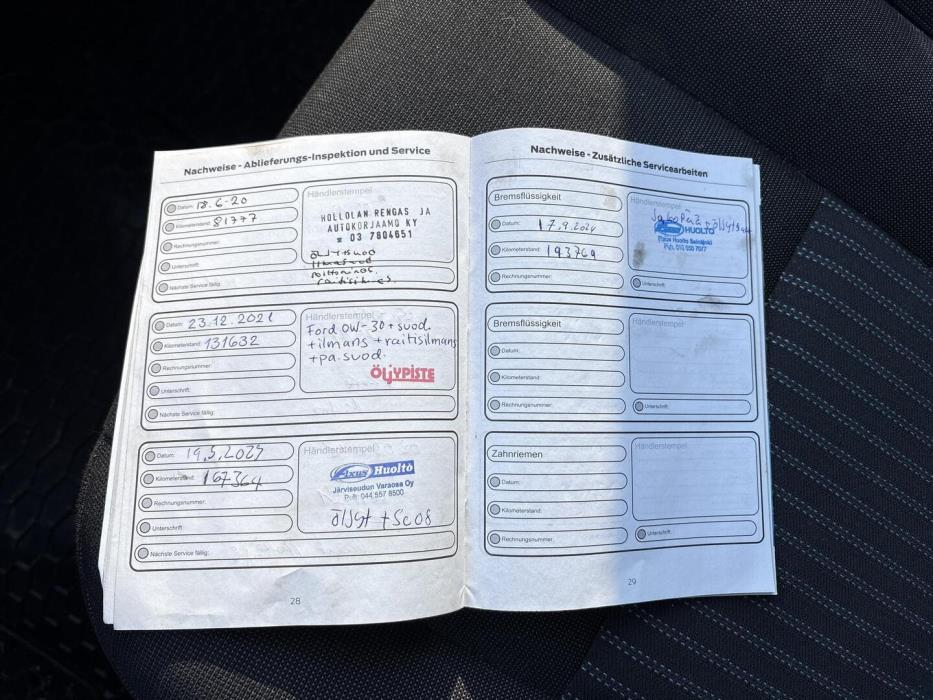 Nachweise - Ablieferungs-Inspektion und Service
Datum: 18.6-20
Kilometerstand: 81777
Rechnungsnummer:
Unterschrift:
Nächste Service fällig:
Händlerstempel
HOLLOLAN RENGAS JA
AUTOKORJAAMO KY
☎ 03 7804651
öljysuod
ilmasuod
polttoainos.
raitisilmas.
Datum: 23.12.2021
Kilometerstand: 131632
Rechnungsnummer:
Unterschrift:
Nächste Service fällig:
Händlerstempel
Ford 0W-30 + suod.
+ilmans +raitisilmans
+pa.suod.
ÖLJYPISTE
Datum: 19.5.2023
Kilometerstand: 167364
Rechnungsnummer:
Unterschrift:
Nächste Service fällig:
Händlerstempel
Akus Huolto
Järviseudun Varaosa Oy
Puh. 044 557 8500
öljyt + suod
28
Nachweise - Zusätzliche Servicearbeiten
Bremsflüssigkeit
Datum: 17.9.2024
Kilometerstand: 193769
Rechnungsnummer:
Händlerstempel
HUOLTO
Fixus Huolto Seinäjoki
Unterschrift:
Bremsflüssigkeit
Datum:
Kilometerstand:
Rechnungsnummer:
Händlerstempel
Unterschrift:
Zahnriemen
Datum:
Kilometerstand:
Rechnungsnummer:
Händlerstempel
Unterschrift:
29